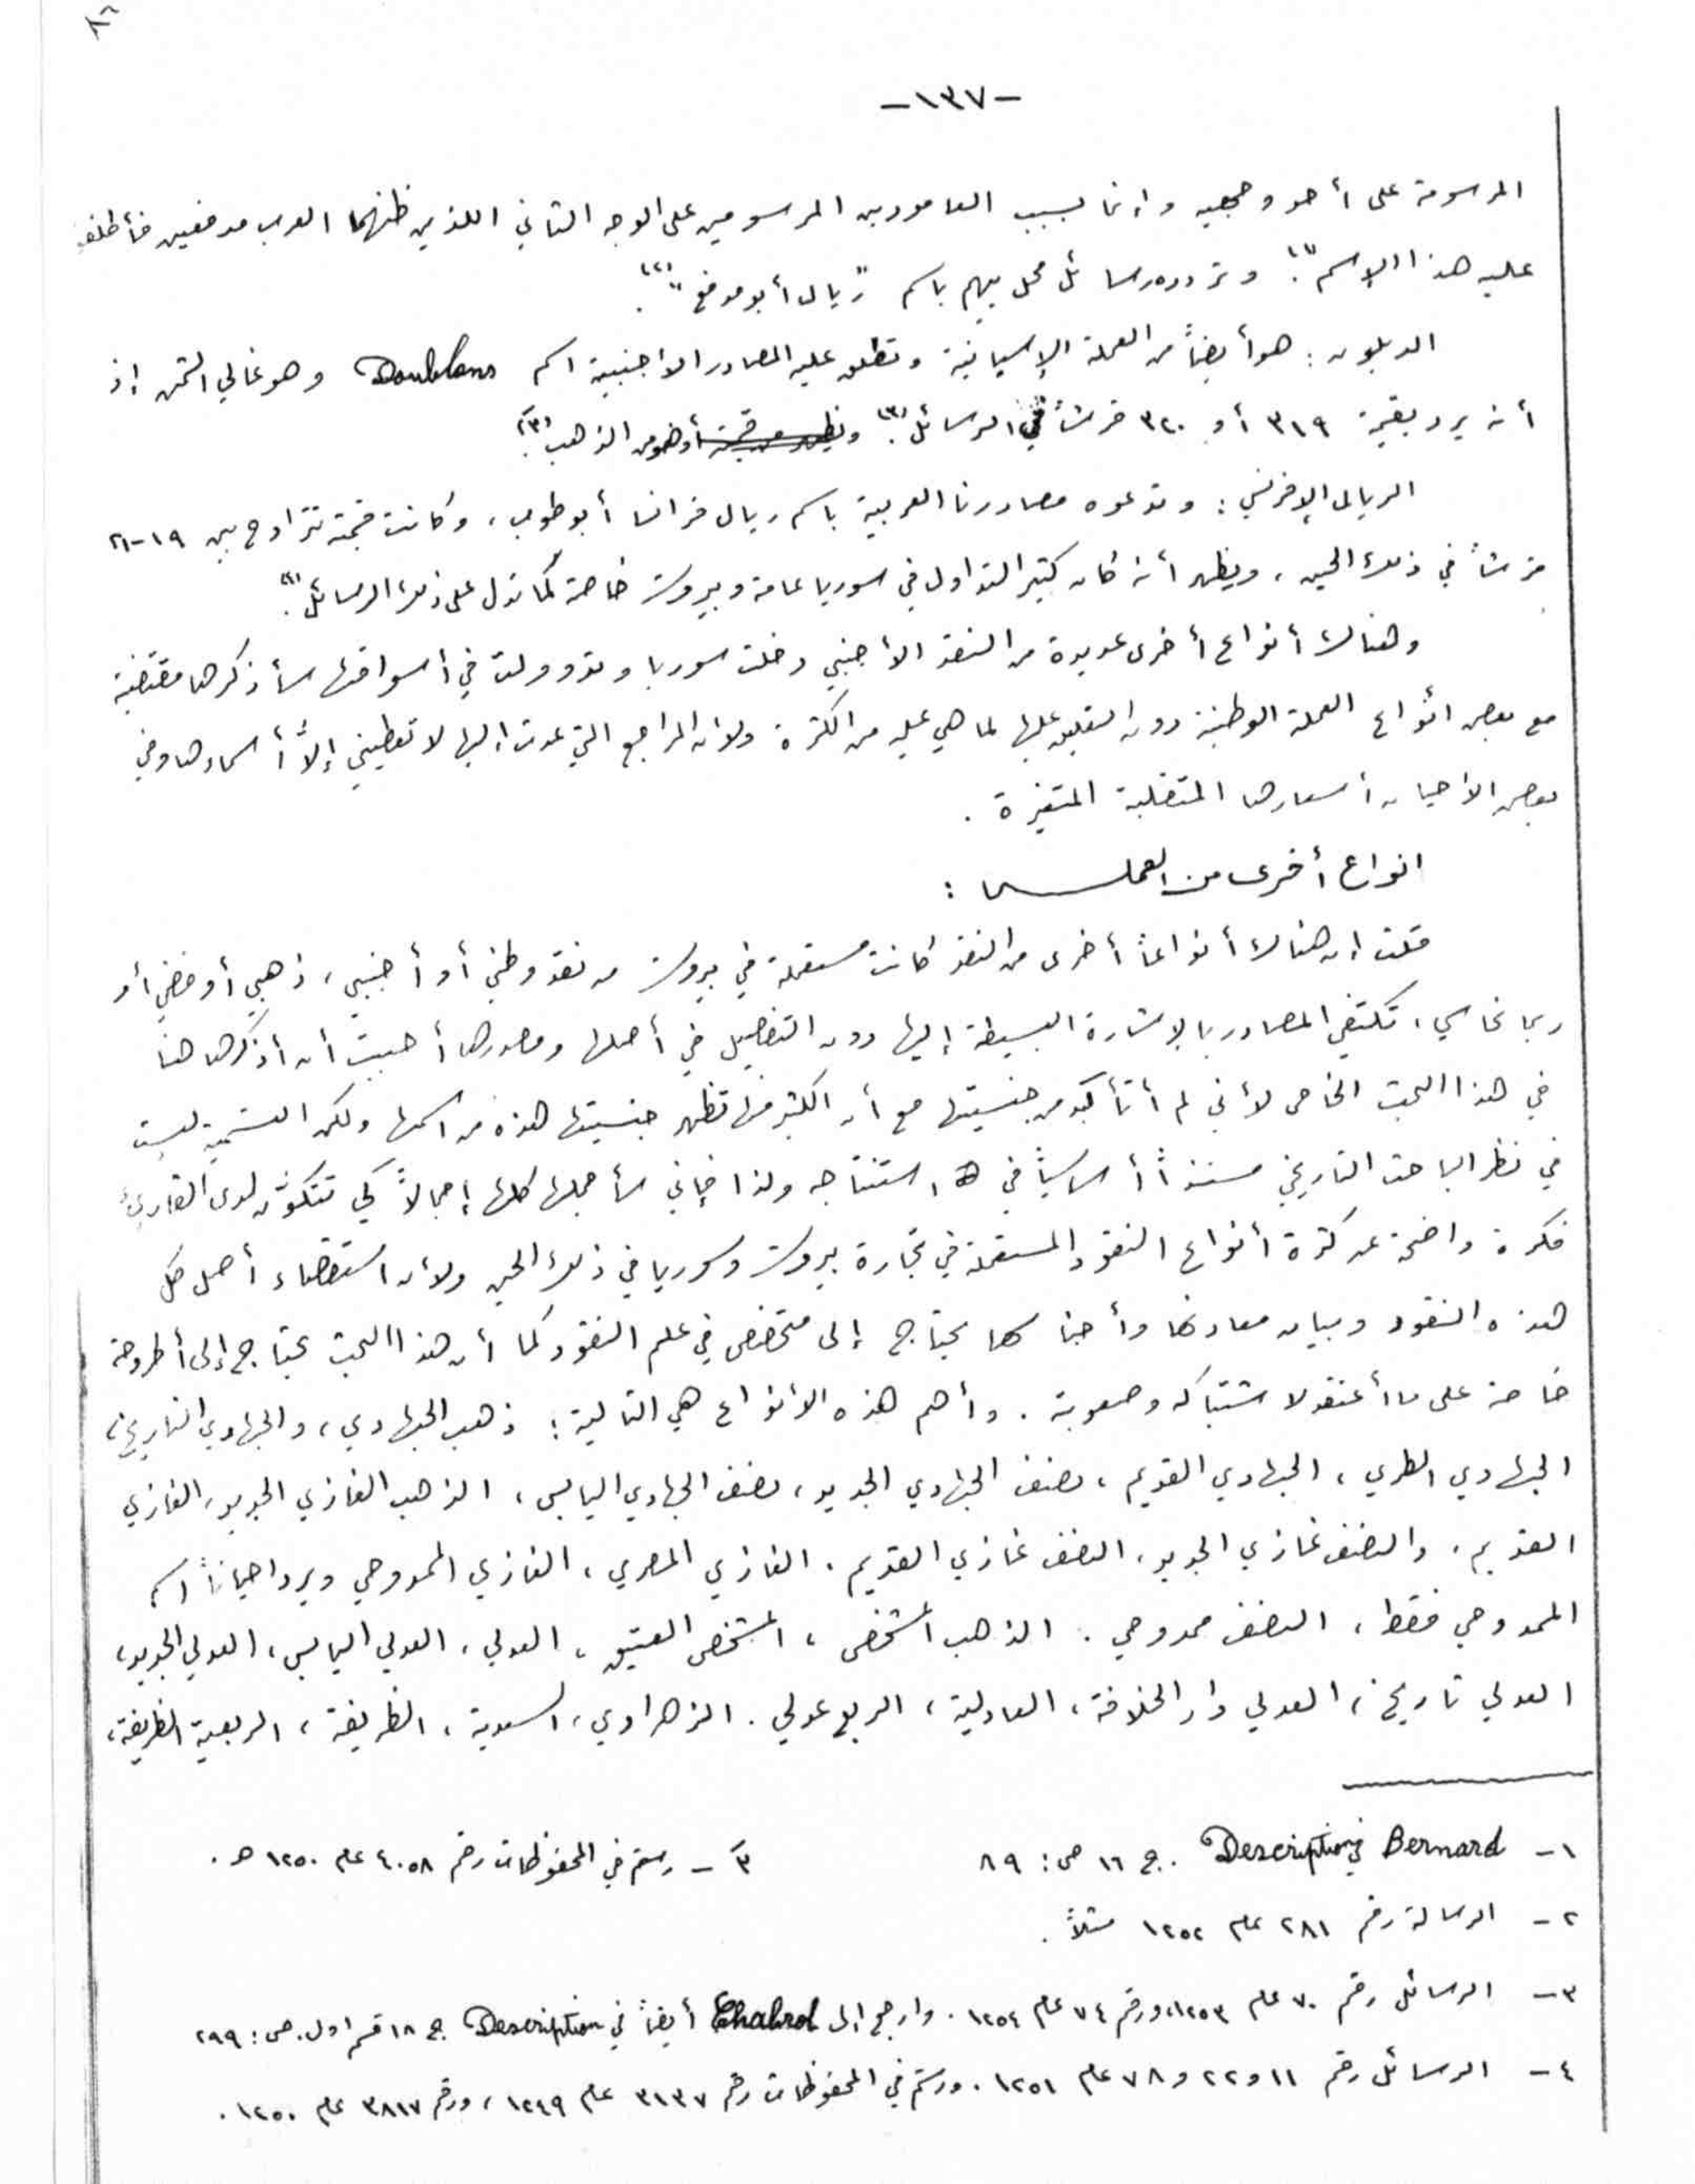 ٨٦
-١٣٧-
المرسومة على أحد وجهيه وإنما بسبب العامودين المرسومين على الوجه الثاني اللذين ظنهما العرب مدفعين فأطلقوا
عليه هذا الإسم(١). وتردده رسائل محل بيهم باسم "ريال أبو مدفع"(٢).
الدبلون : هو أيضاً من العملة الإسبانية وتطلق عليه المصادر الاجنبية اسم Doublons وهو غالي الثمن إذ
أنه يرد بقيمة ٣١٩ أو ٣٢٠ قرشاً في الرسائل(٣). وهو من الذهب(٣).
الريال الإفرنسي : وتدعوه مصادرنا العربية باسم ريال فرانسا أبو طوب، وكانت قيمته تتراوح بين ١٩-٢١
قرشاً في ذلك الحين، ويظهر أنه كان كثير التداول في سوريا عامة وبيروت خاصة كما تدل على ذلك الرسائل(٤).
وهناك أنواع أخرى عديدة من النقد الأجنبي دخلت سوريا وتدوولت في أسواقها سأذكرها مقتضبة
مع بعض انواع العملة الوطنية دون التعليق عليها لما هي عليه من الكثرة ولأن المراجع التي عدت إليها لا تعطيني إلاّ أسماءها وفي
بعض الأحيان أسعارها المتقلبة المتغيرة .
انواع أخرى من العملـــة :
قلت إن هناك أنواعاً أخرى من النقد كانت مستعملة في بيروت من نقد وطني أو أجنبي، ذهبي أو فضي أو
ربما نحاسي، تكتفي المصادر بالإشارة البسيطة إليها دون التفصيل في أصلها ومصدرها أحببت أن أذكرها هنا
في هذا البحث الخاص لأني لم أتأكد من جنسيتها مع أن الكثير منها تظهر جنسيتها هذه من اسمها ولكن التسمية ليست
في نظر الباحث التاريخي مستنداً أساسياً في استنتاجه ولذا فإني سأجملها كلها إجمالاً كي تتكوّن لدى القارئ
فكرة واضحة عن كثرة أنواع النقود المستعملة في تجارة بيروت وسوريا في ذلك الحين ولأن استقصاء أصل كل
هذه النقود وبيان معادنها وأجناسها يحتاج إلى متخصص في علم النقود كما أن هذا البحث يحتاج إلى أطروحة
خاصة على ما أعتقد لاشتباكه وصعوبته . وأهم هذه الأنواع هي التالية : ذهب الجهادي، والجهادي التاريخ،
الجهادي الطري، الجهادي القديم، نصف الجهادي الجديد، نصف الجهادي اليابس، الذهب الغازي الجديد، الغازي
القديم، والنصف غازي الجديد، النصف غازي القديم . الغازي المصري، الغازي الممدوحي ويرد احياناً اسم
الممدوحي فقط، النصف ممدوحي . الذهب المشخص، المشخص العتيق، العدلي، العدلي اليابس، العدلي الجديد،
العدلي تاريخ، العدلي دار الخلافة، العادلية، الربع عدلي . الزهراوي، السعدية، الظريفة، الربعية الظريفة،
١- Bernard في Description . ج ١٦ ص : ٨٩
٣ - رستم في المحفوظات رقم ٤٠٥٨ عام ١٢٥٠ هـ .
٢- الرسالة رقم ٢٨١ عام ١٢٥٢ مثلاً .
٣- الرسائل رقم ٧٠ عام ١٢٥٣، ورقم ٧٤ عام ١٢٥٤ . وارجع إلى Chabrol أيضاً في Description ج ١٨ قسم اول . ص : ٢٩٩
٤- الرسائل رقم ١١ و ٢٢ و ٧٨ عام ١٢٥١ . ورستم في المحفوظات رقم ٣١٣٧ عام ١٢٤٩، ورقم ٣٨١٧ عام ١٢٥٠ .